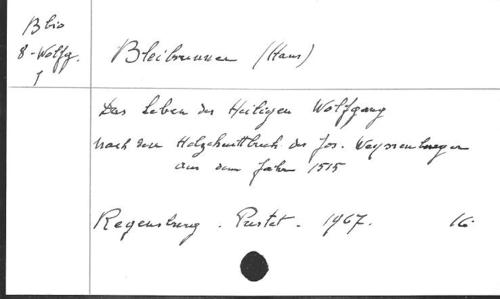 B bio
8 - Wolfg.
1
Bleibrunner (Hans)
Das Leben des Heiligen Wolfgang
nach dem Holzschnittbuch des Joh. Weyssenburger
aus dem Jahr 1515
Regensburg. Pustet. 1967. 16.